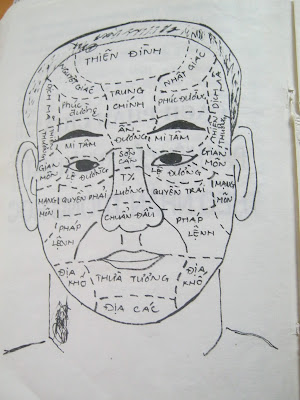 THIÊN ĐÌNH
NGUYỆT GIÁC
NHẬT GIÁC
TRUNG
CHÍNH
PHÚC
ĐƯỜNG
PHÚC ĐƯỜNG
THIÊN
DỊCH
MÃ
THƯƠNG
ẤN
ĐƯỜNG
MI TÂM
MI TÂM
GIAN
MÔN
SƠN
CĂN
GIAN
MÔN
LỆ ĐƯỜNG
LỆ ĐƯỜNG
TỴ
LƯƠNG
MẠNG
MÔN
QUYỀN PHẢI
QUYỀN TRÁI
MẠNG
MÔN
CHUẨN ĐẦU
PHÁP
LỆNH
PHÁP
LỆNH
ĐỊA
KHÔ
THỪA TƯƠNG
ĐỊA
KHÔ
ĐỊA CÁC